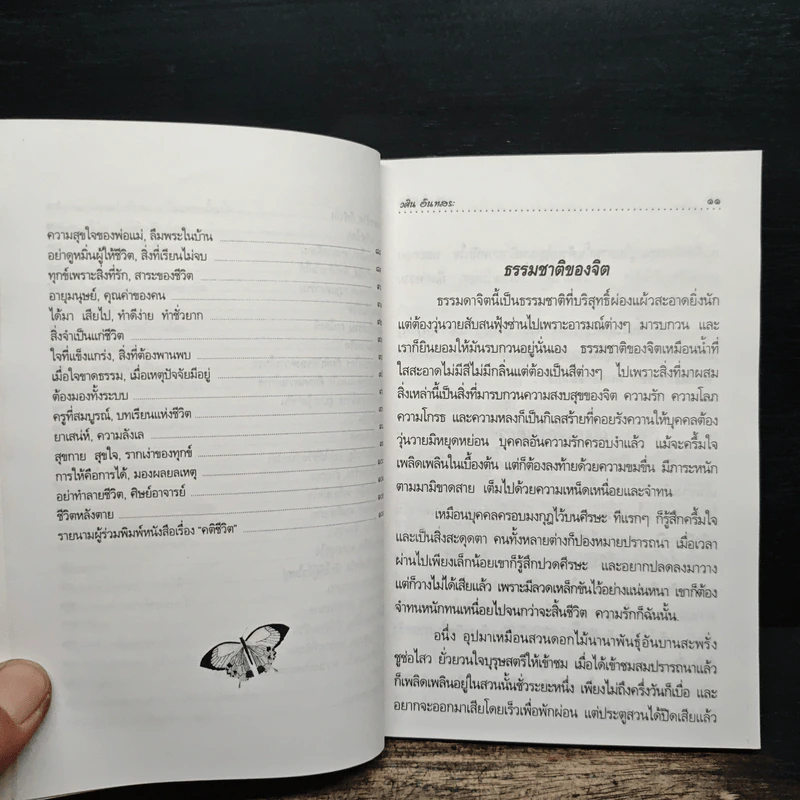 ความสุขใจของพ่อแม่, ลืมพระในบ้าน
อย่าดูหมิ่นผู้ให้ชีวิต, สิ่งที่เรียนไม่จบ
ทุกข์เพราะสิ่งที่รัก, สาระของชีวิต
อายุมนุษย์, คุณค่าของคน
ได้มา เสียไป, ทำดีง่าย ทำชั่วยาก
สิ่งจำเป็นแก่ชีวิต
ใจที่แข็งแกร่ง, สิ่งที่ต้องพานพบ
เมื่อใจขาดธรรม, เมื่อเหตุปัจจัยมีอยู่
ต้องมองทั้งระบบ
ครูที่สมบูรณ์, บทเรียนแห่งชีวิต
ยาเสน่ห์, ความลังเล
สุขกาย สุขใจ, รากเง่าของทุกข์
การให้คือการได้, มองผลยลเหตุ
อย่าทำลายชีวิต, ศิษย์อาจารย์
ชีวิตหลังตาย
รายนามผู้ร่วมพิมพ์หนังสือเรื่อง "คติชีวิต"
วศิน อินทสระ ๑๑
ธรรมชาติของจิต
ธรรมดาจิตนี้เป็นธรรมชาติที่บริสุทธิ์ผ่องแผ้วสะอาดยิ่งนัก
แต่ต้องวุ่นวายสับสนฟุ้งซ่านไปเพราะอารมณ์ต่างๆ มารบกวน และ
เราก็ยินยอมให้มันรบกวนอยู่นั่นเอง ธรรมชาติของจิตเหมือนน้ำที่
ใสสะอาดไม่มีสีไม่มีกลิ่นแต่ต้องเป็นสีต่างๆ ไปเพราะสิ่งที่มาผสม
สิ่งเหล่านี้เป็นสิ่งที่มารบกวนความสงบสุขของจิต ความรัก ความโลภ
ความโกรธ และความหลงก็เป็นกิเลสร้ายที่คอยรังควานให้บุคคลต้อง
วุ่นวายมิหยุดหย่อน บุคคลอันความรักครอบงำแล้ว แม้จะครึ้มใจ
เพลิดเพลินในเบื้องต้น แต่ก็ต้องลงท้ายด้วยความขมขื่น มีภาระหนัก
ตามมามิขาดสาย เต็มไปด้วยความเหน็ดเหนื่อยและจำทน
เหมือนบุคคลครอบมงกุฎไว้บนศีรษะ ทีแรกๆ ก็รู้สึกครึ้มใจ
และเป็นสิ่งสะดุดตา คนทั้งหลายต่างก็ปองหมายปรารถนา เมื่อเวลา
ผ่านไปเพียงเล็กน้อยเขาก็รู้สึกปวดศีรษะ และอยากปลดลงมาวาง
แต่ก็วางไม่ได้เสียแล้ว เพราะมีลวดเหล็กขันไว้อย่างแน่นหนา เขาก็ต้อง
จำทนหนักทนเหนื่อยไปจนกว่าจะสิ้นชีวิต ความรักก็ฉันนั้น
อนึ่ง อุปมาเหมือนสวนดอกไม้นานาพันธุ์อันบานสะพรั่ง
ชูช่อไสว ยั่วยวนใจบุรุษสตรีให้เข้าชม เมื่อได้เข้าชมสมปรารถนาแล้ว
ก็เพลิดเพลินอยู่ในสวนนั้นชั่วระยะหนึ่ง เพียงไม่ถึงครึ่งวันก็เบื่อ และ
อยากจะออกมาเสียโดยเร็วเพื่อพักผ่อน แต่ประตูสวนได้ปิดเสียแล้ว